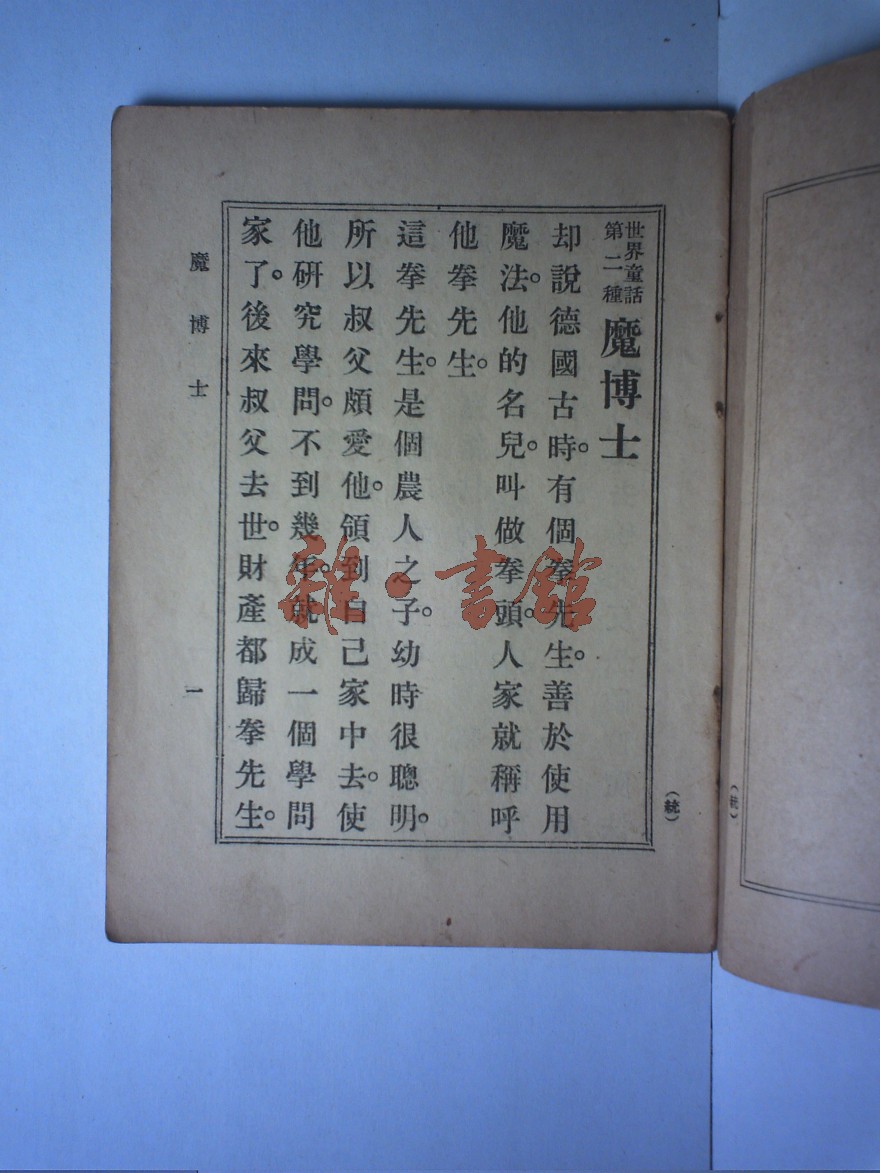 世界童話
第二種
魔博士
却說德國古時。有個拳先生。善於使用
魔法。他的名兒。叫做拳頭。人家就稱呼
他拳先生。
這拳先生。是個農人之子。幼時很聰明。
所以叔父頗愛他。領到自己家中去。使
他硏究學問。不到幾年。就成一個學問
家了。後來叔父去世。財產都歸拳先生。
魔博士
一
(統)
(統)
雜·書館